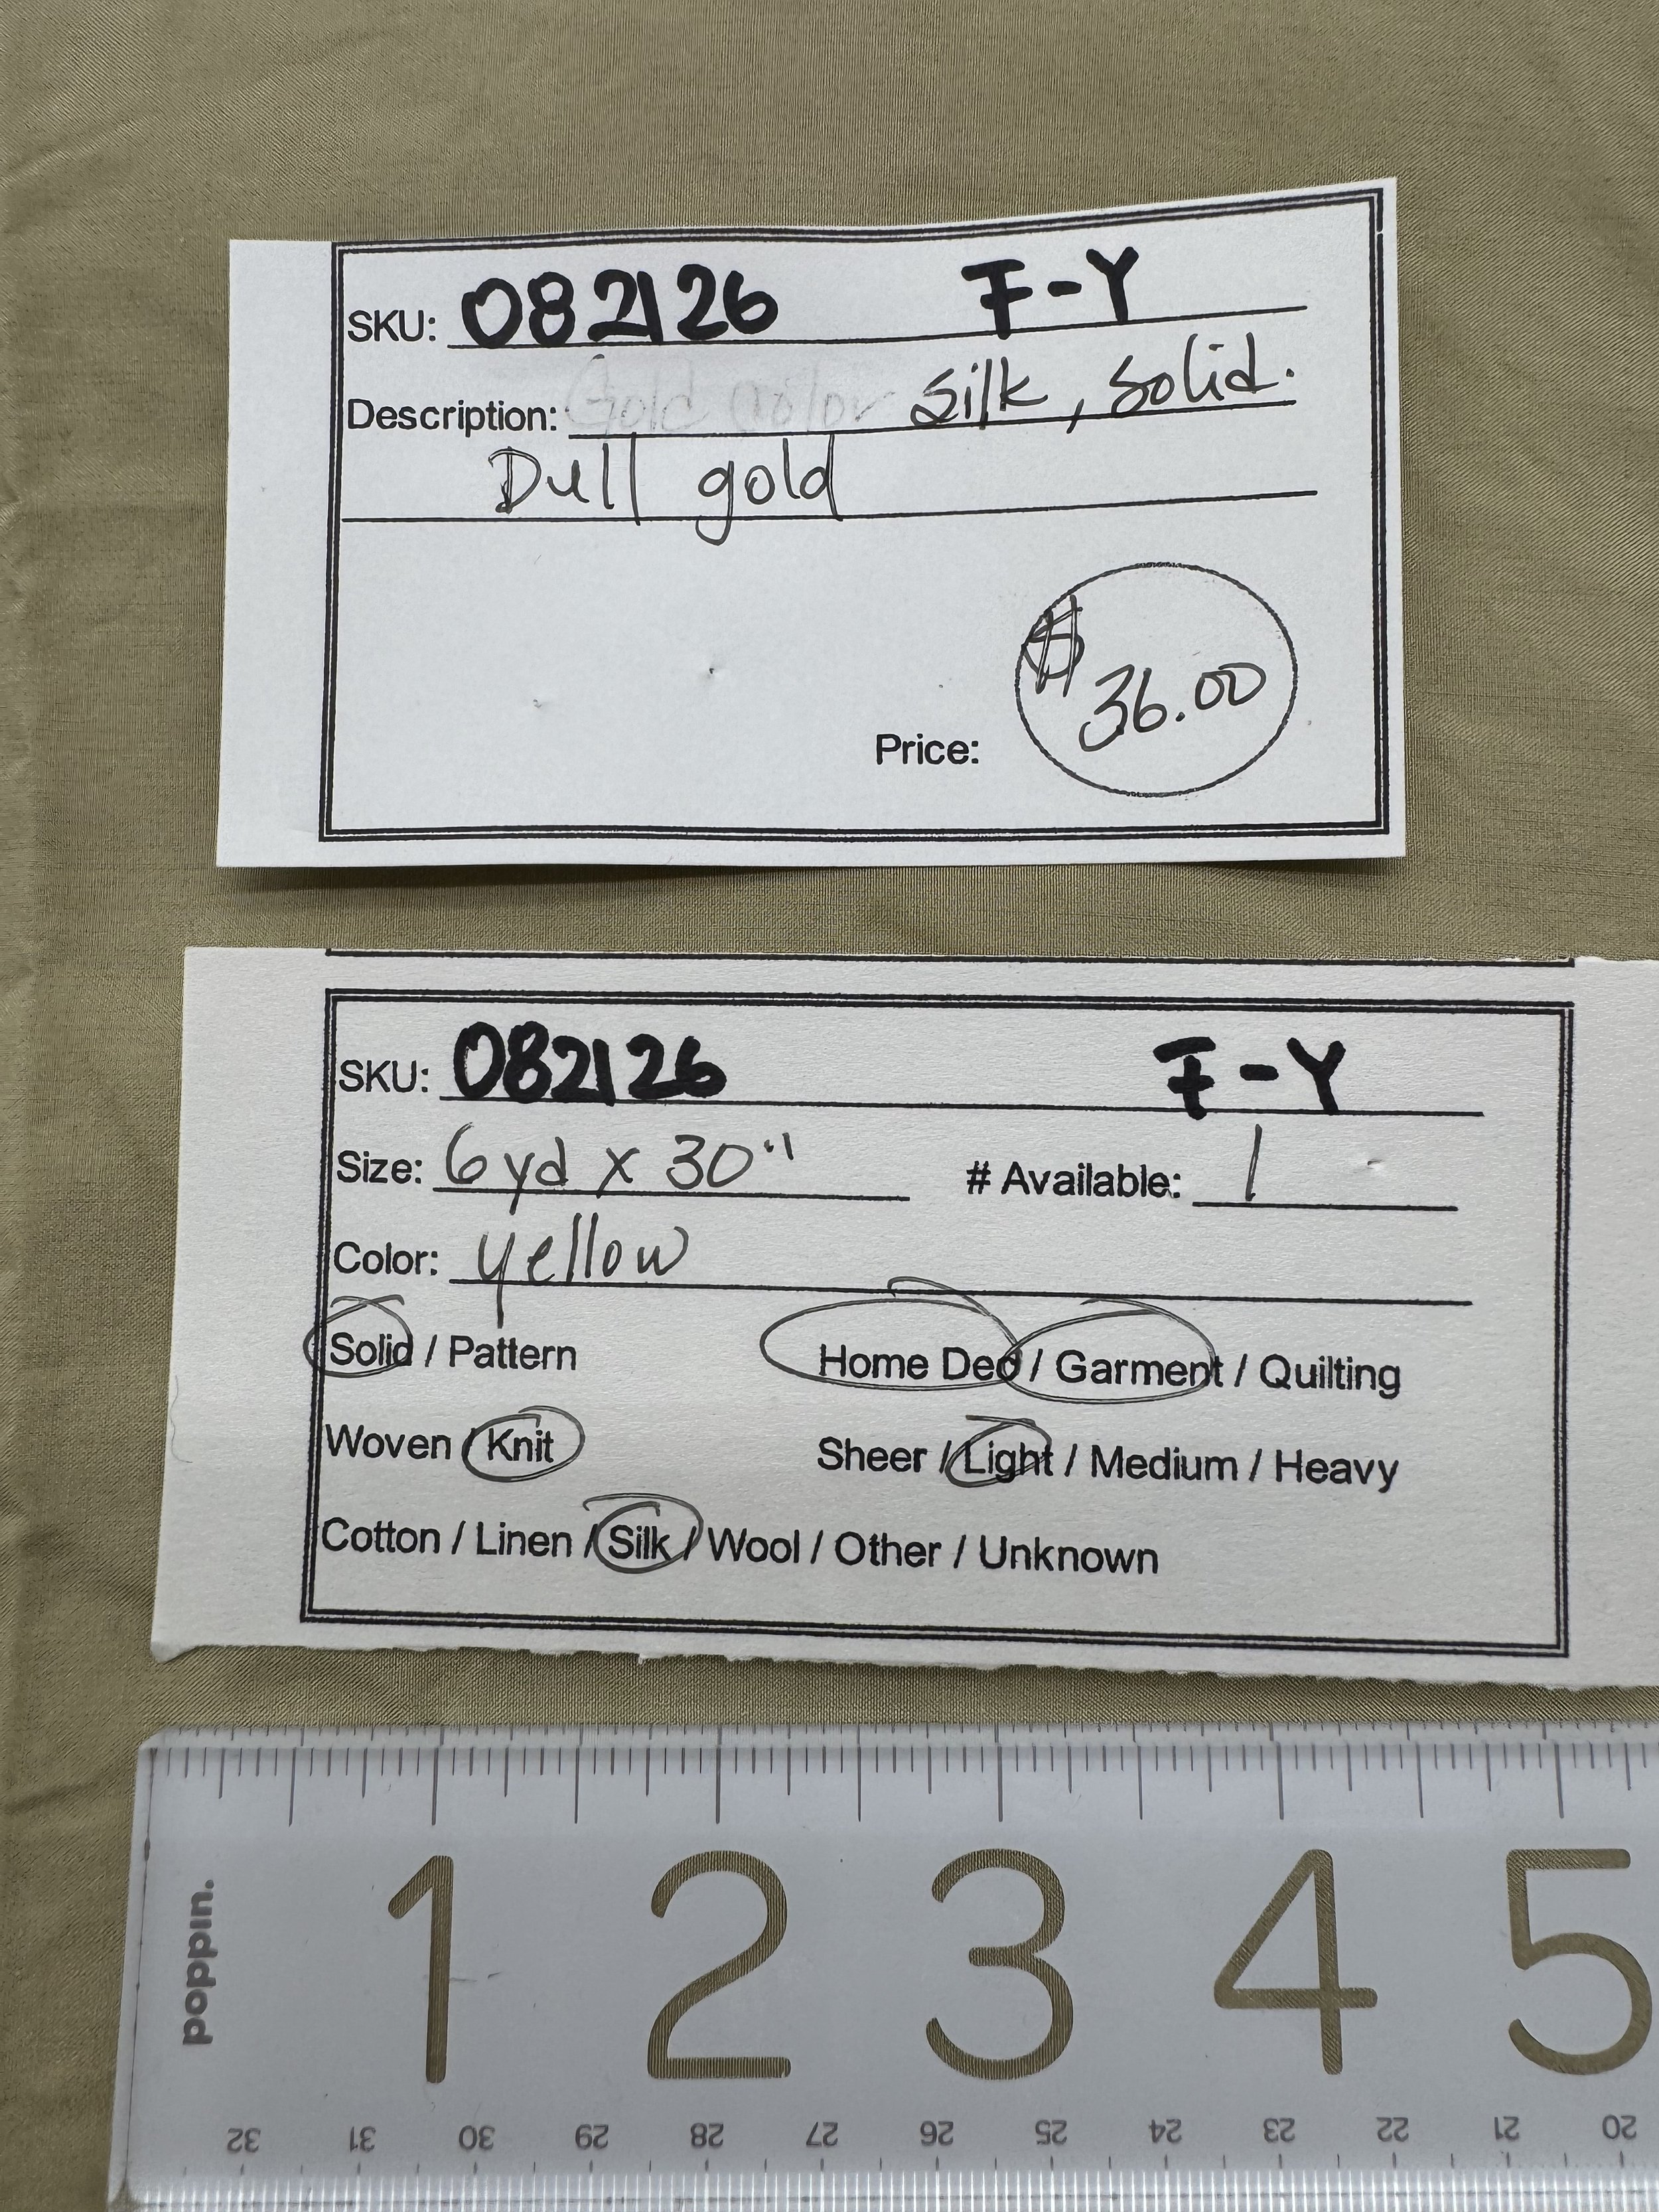 SKU: 082126 F-Y
Description: Gold color Silk, Solid.
Dull gold
Price: $36.00
SKU: 082126 F-Y
Size: 6yd x 30" # Available: 1
Color: yellow
Solid / Pattern Home Dec / Garment / Quilting
Woven / Knit Sheer / Light / Medium / Heavy
Cotton / Linen / Silk / Wool / Other / Unknown
1 2 3 4 5
poppin.
32 31 30 29 28 27 26 25 24 23 22 21 20